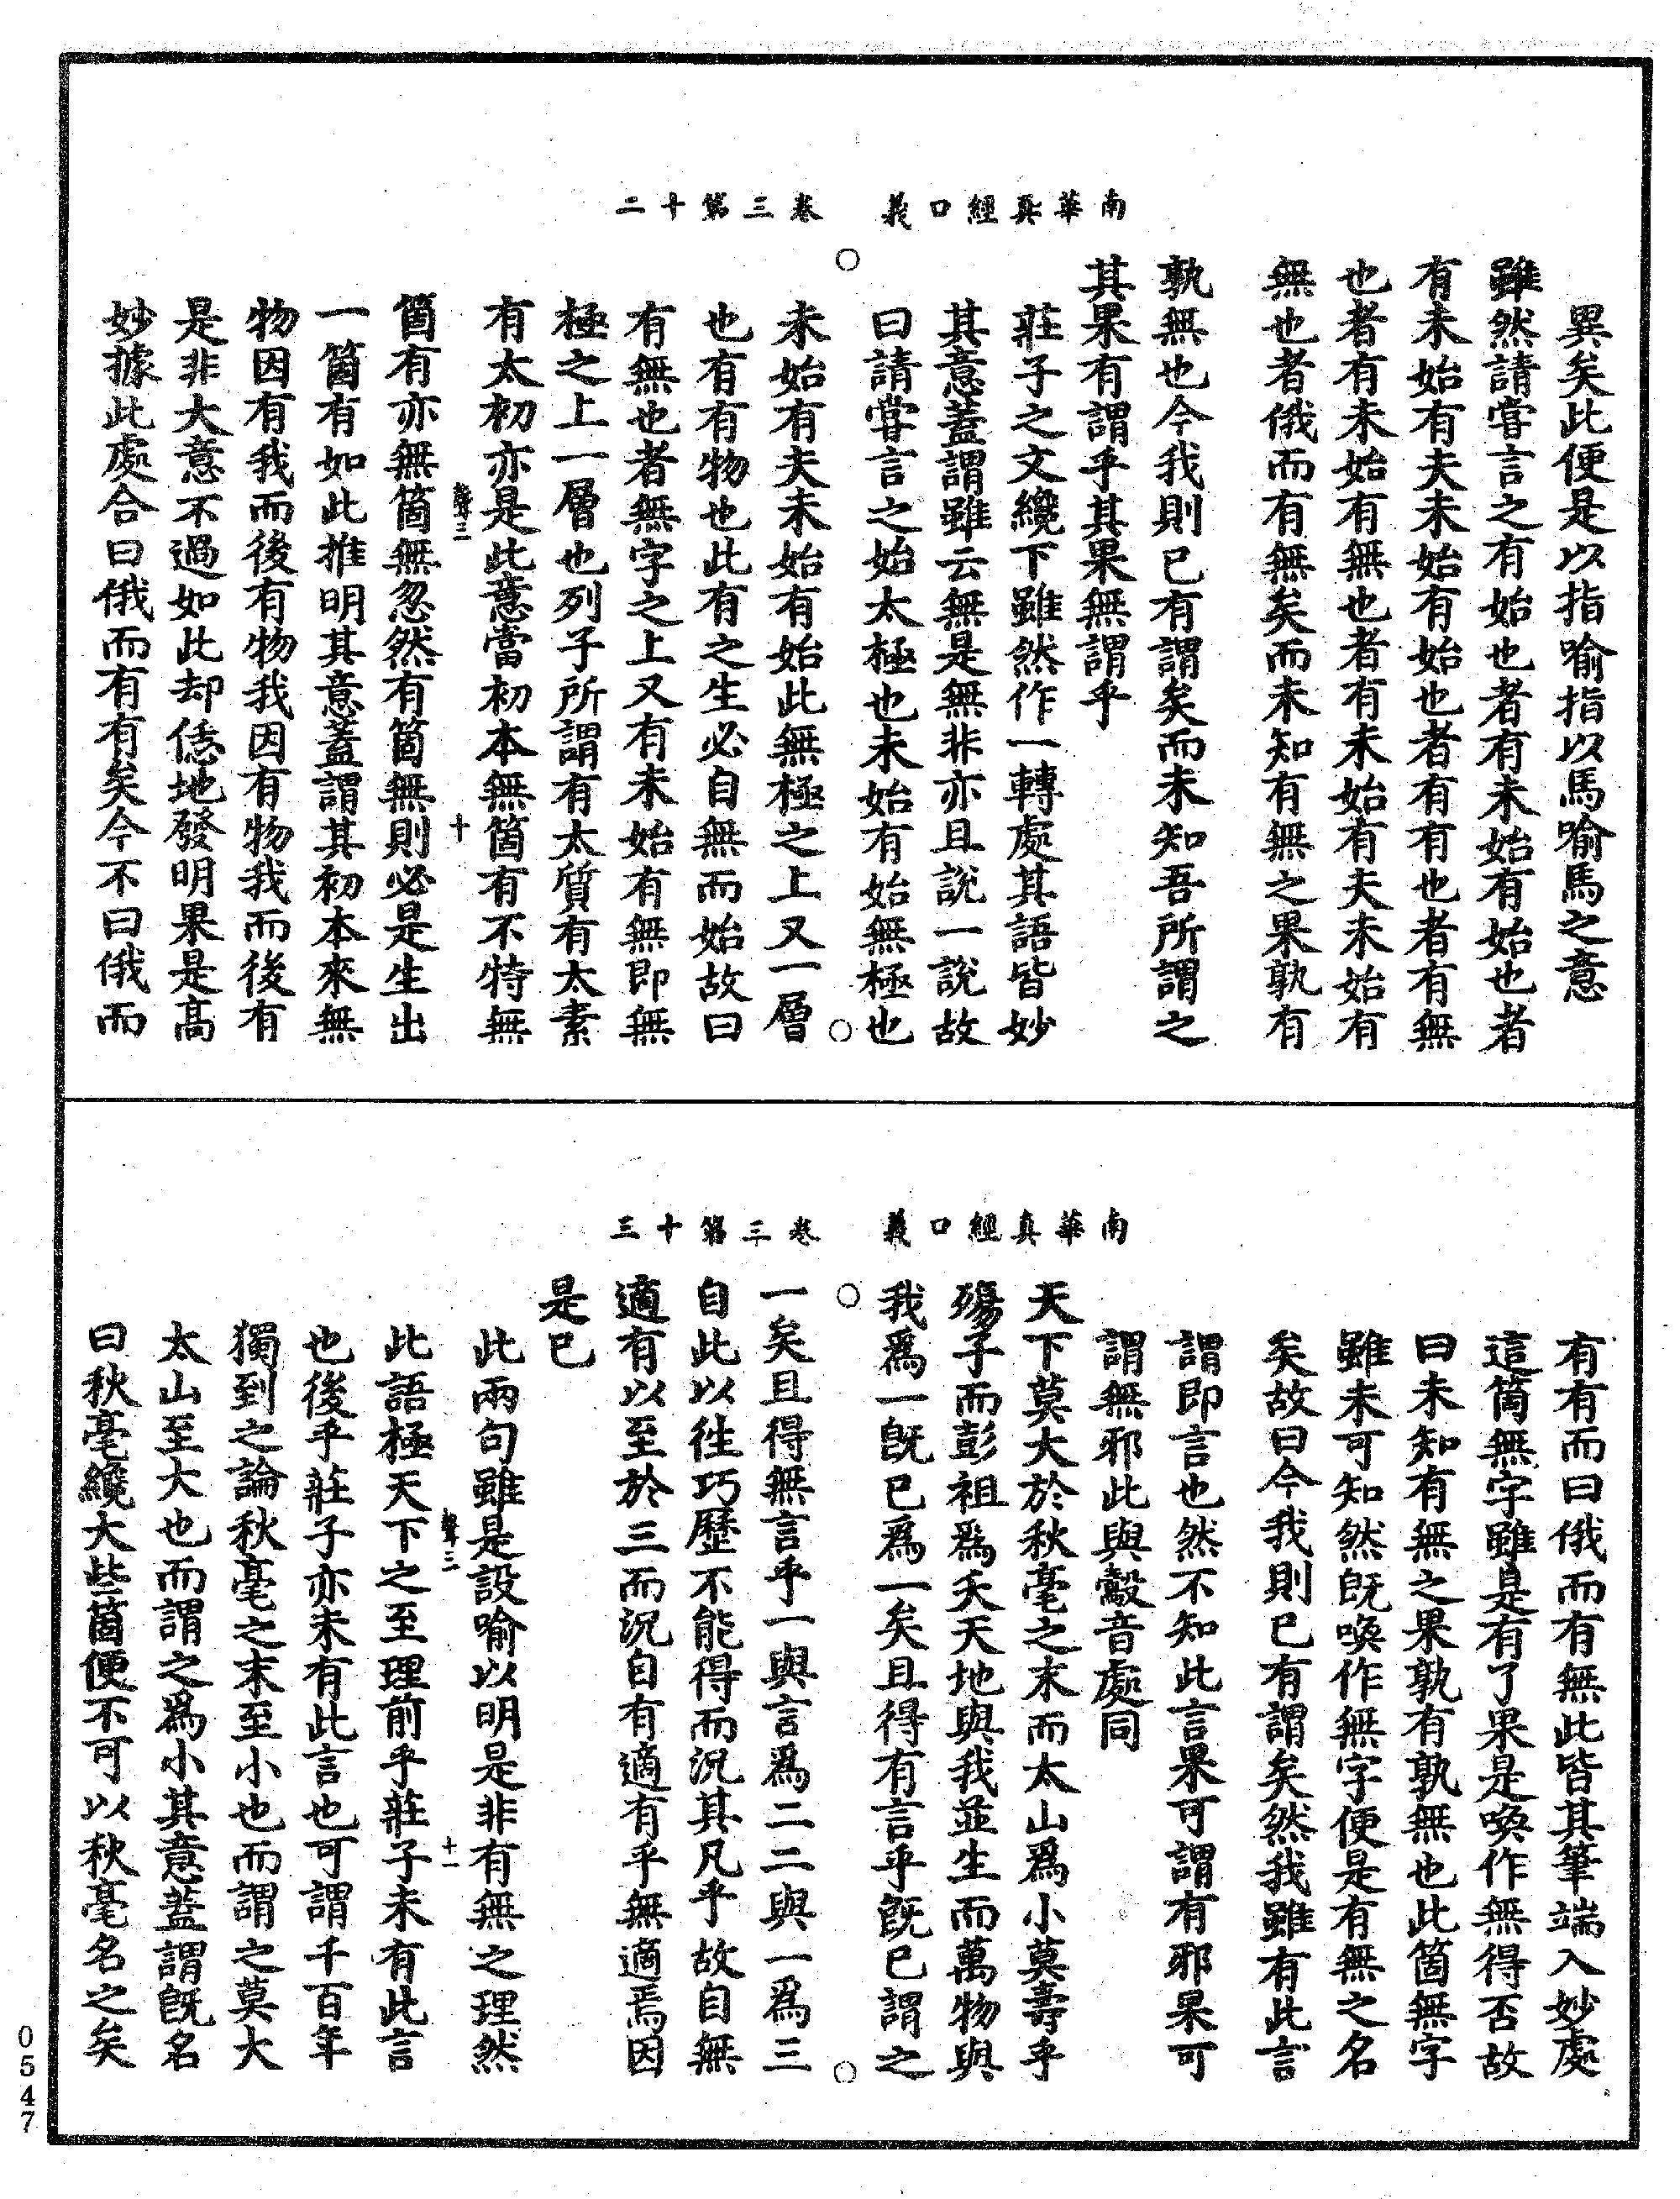 南華真經口義　卷三第十二
異矣此便是以指喻指以馬喻馬之意
雖然請嘗言之有始也者有未始有始也者
有未始有夫未始有始也者有有也者有無
也者有未始有無也者有未始有夫未始有
無也者俄而有無矣而未知有無之果孰有
孰無也今我則已有謂矣而未知吾所謂之
其果有謂乎其果無謂乎
莊子之文纔下雖然作一轉處其語皆妙
其意蓋謂雖云無是無非亦且說一說故
曰請嘗言之始太極也未始有始無極也
未始有夫未始有始此無極之上又一層
也有有物也此有之生必自無而始故曰
有無也者無字之上又有未始有無即無
極之上一層也列子所謂有太質有太素
有太初亦是此意當初本無箇有不特無
聲三　十
箇有亦無箇無忽然有箇無則必是生出
一箇有如此推明其意蓋謂其初本來無
物因有我而後有物我因有物我而後有
是非大意不過如此却恁地發明果是高
妙據此處合曰俄而有有矣今不曰俄而
南華真經口義　卷三第十三
有有而曰俄而有無此皆其筆端入妙處
這箇無字雖是有了果是喚作無得否故
曰未知有無之果孰有孰無也此箇無字
雖未可知然既喚作無字便是有無之名
矣故曰今我則已有謂矣然我雖有此言
謂即言也然不知此言果可謂有邪果可
謂無邪此與鷇音處同
天下莫大於秋毫之末而太山爲小莫壽乎
殤子而彭祖爲夭天地與我並生而萬物與
我爲一既已爲一矣且得有言乎既已謂之
一矣且得無言乎一與言爲二二與一爲三
自此以往巧歷不能得而況其凡乎故自無
適有以至於三而況自有適有乎無適焉因
是已
此兩句雖是設喻以明是非有無之理然
聲三　十一
此語極天下之至理前乎莊子未有此言
也後乎莊子亦未有此言也可謂千百年
獨到之論秋毫之末至小也而謂之莫大
太山至大也而謂之爲小其意蓋謂既名
曰秋毫纔大些箇便不可以秋毫名之矣
0547